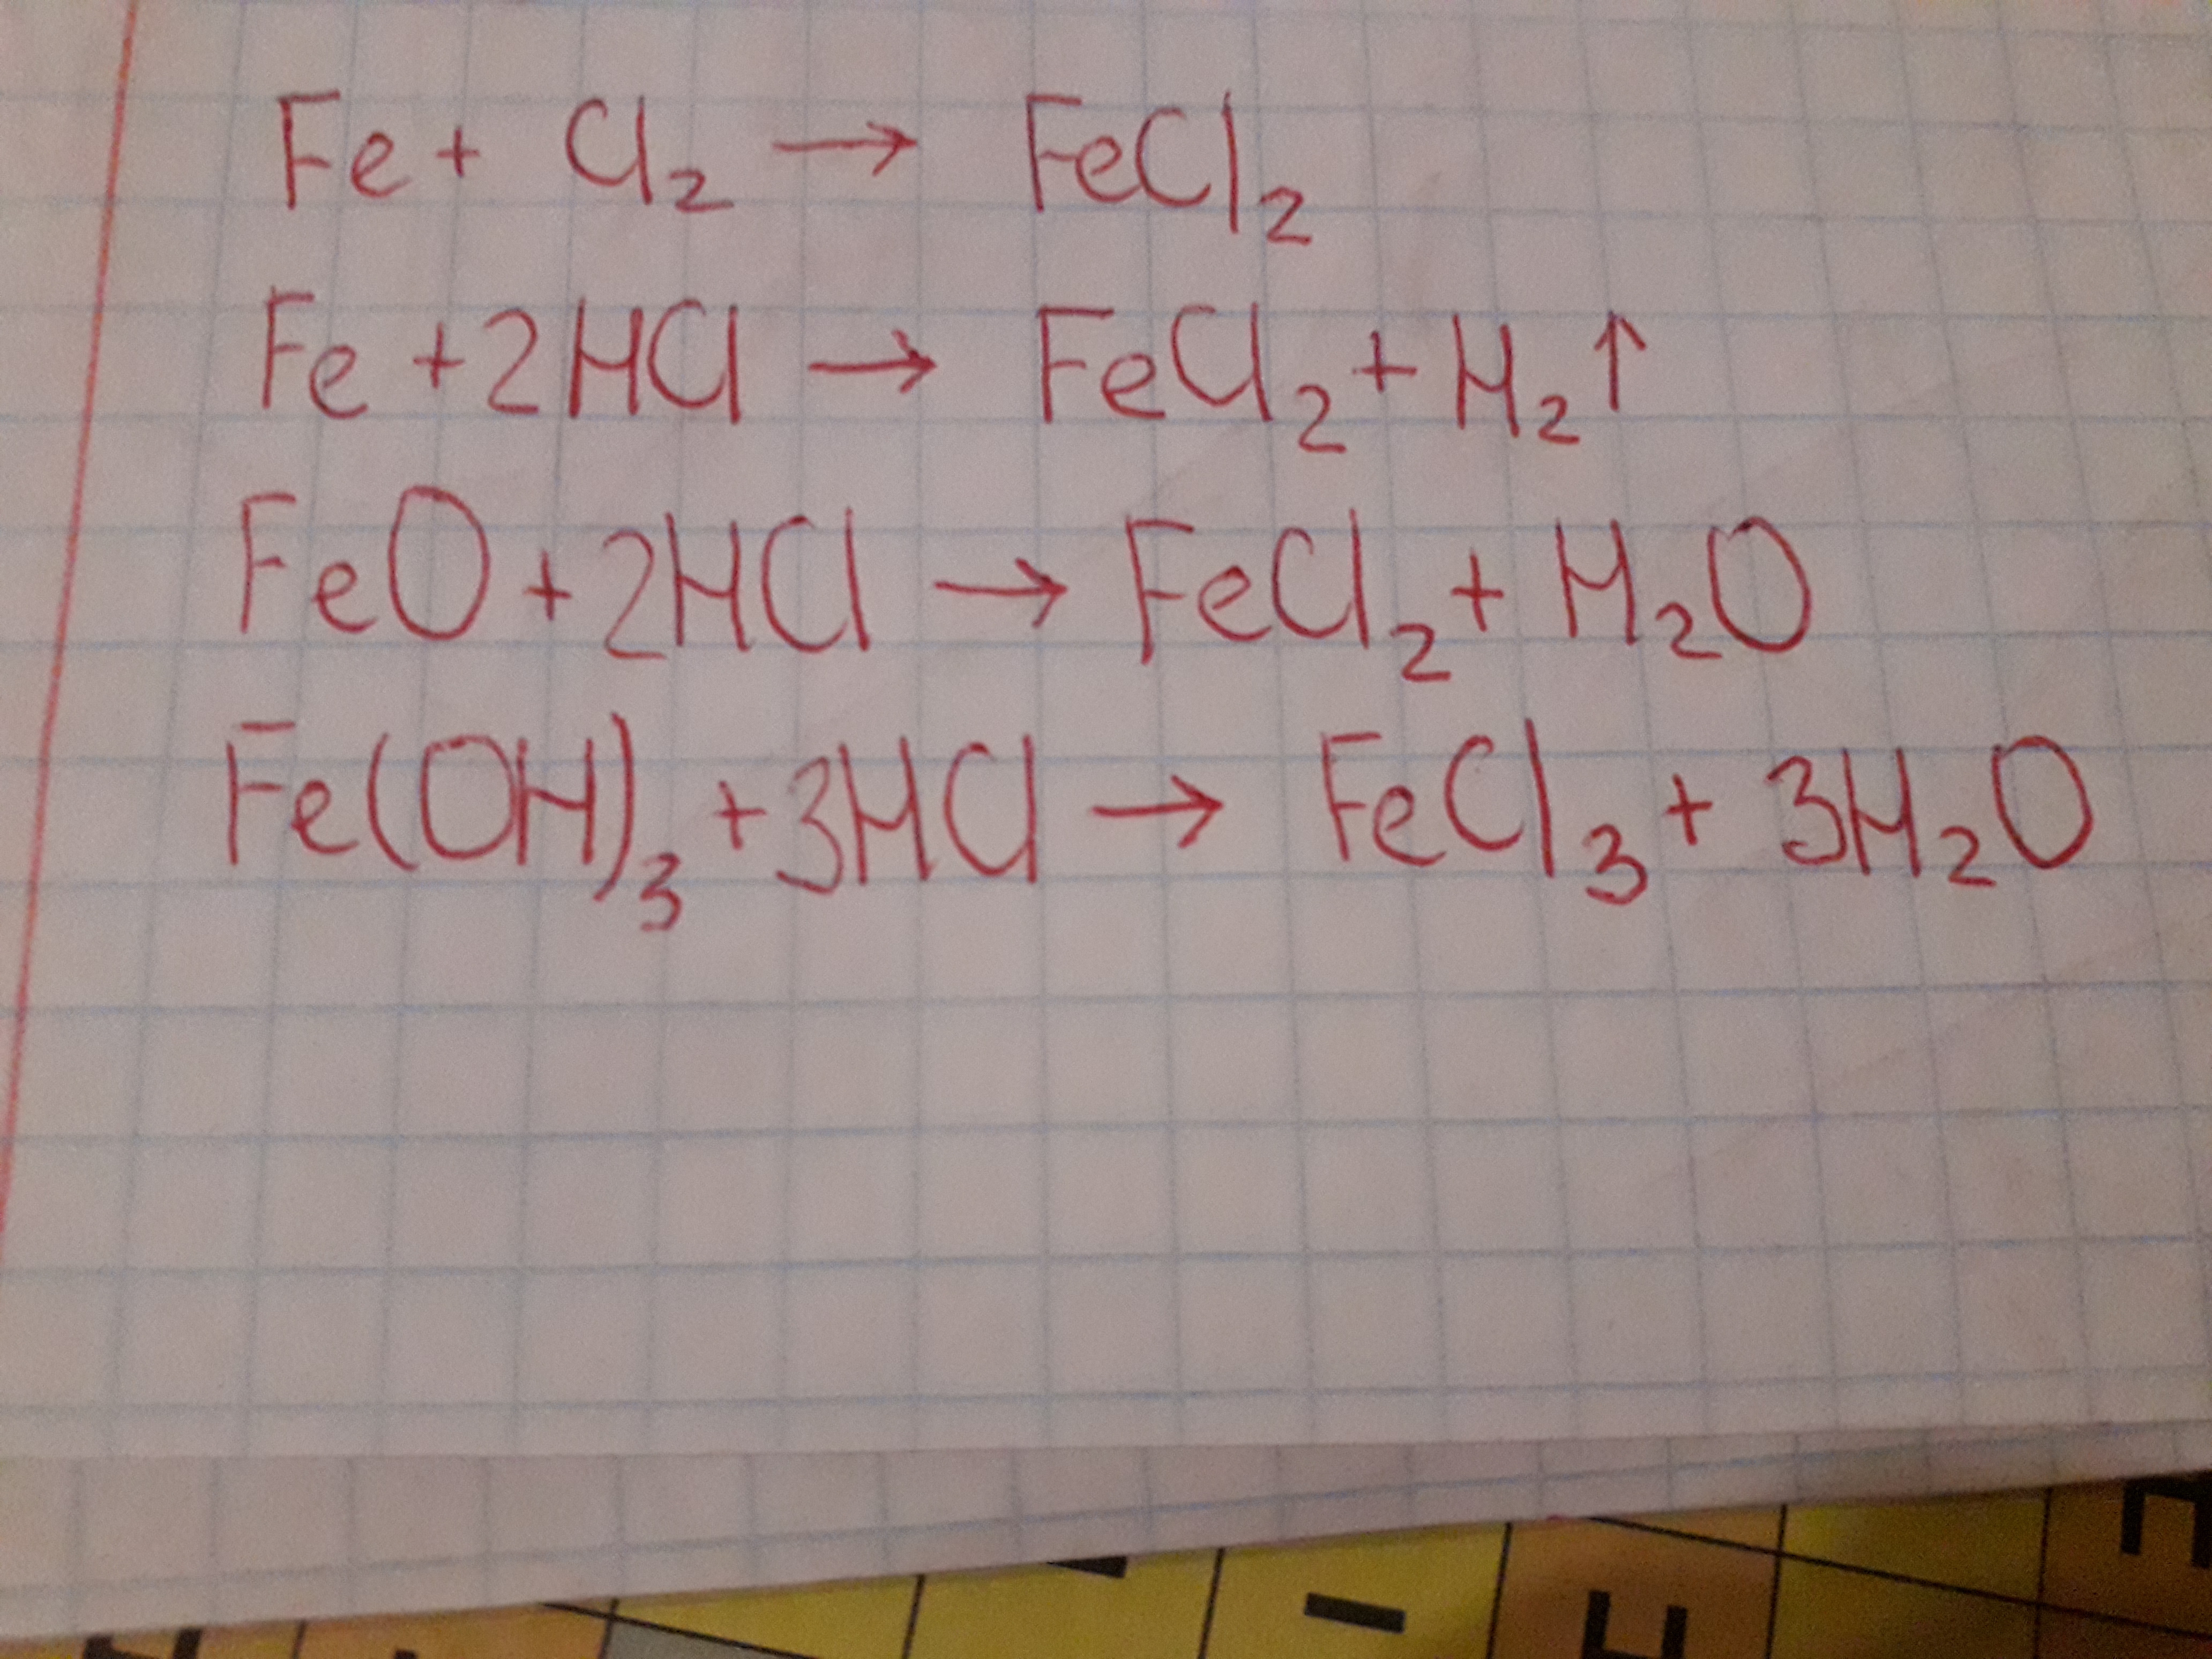 Fe + Cl₂ → FeCl₂
Fe + 2HCl → FeCl₂ + H₂↑
FeO + 2HCl → FeCl₂ + H₂O
Fe(OH)₃ + 3HCl → FeCl₃ + 3H₂O